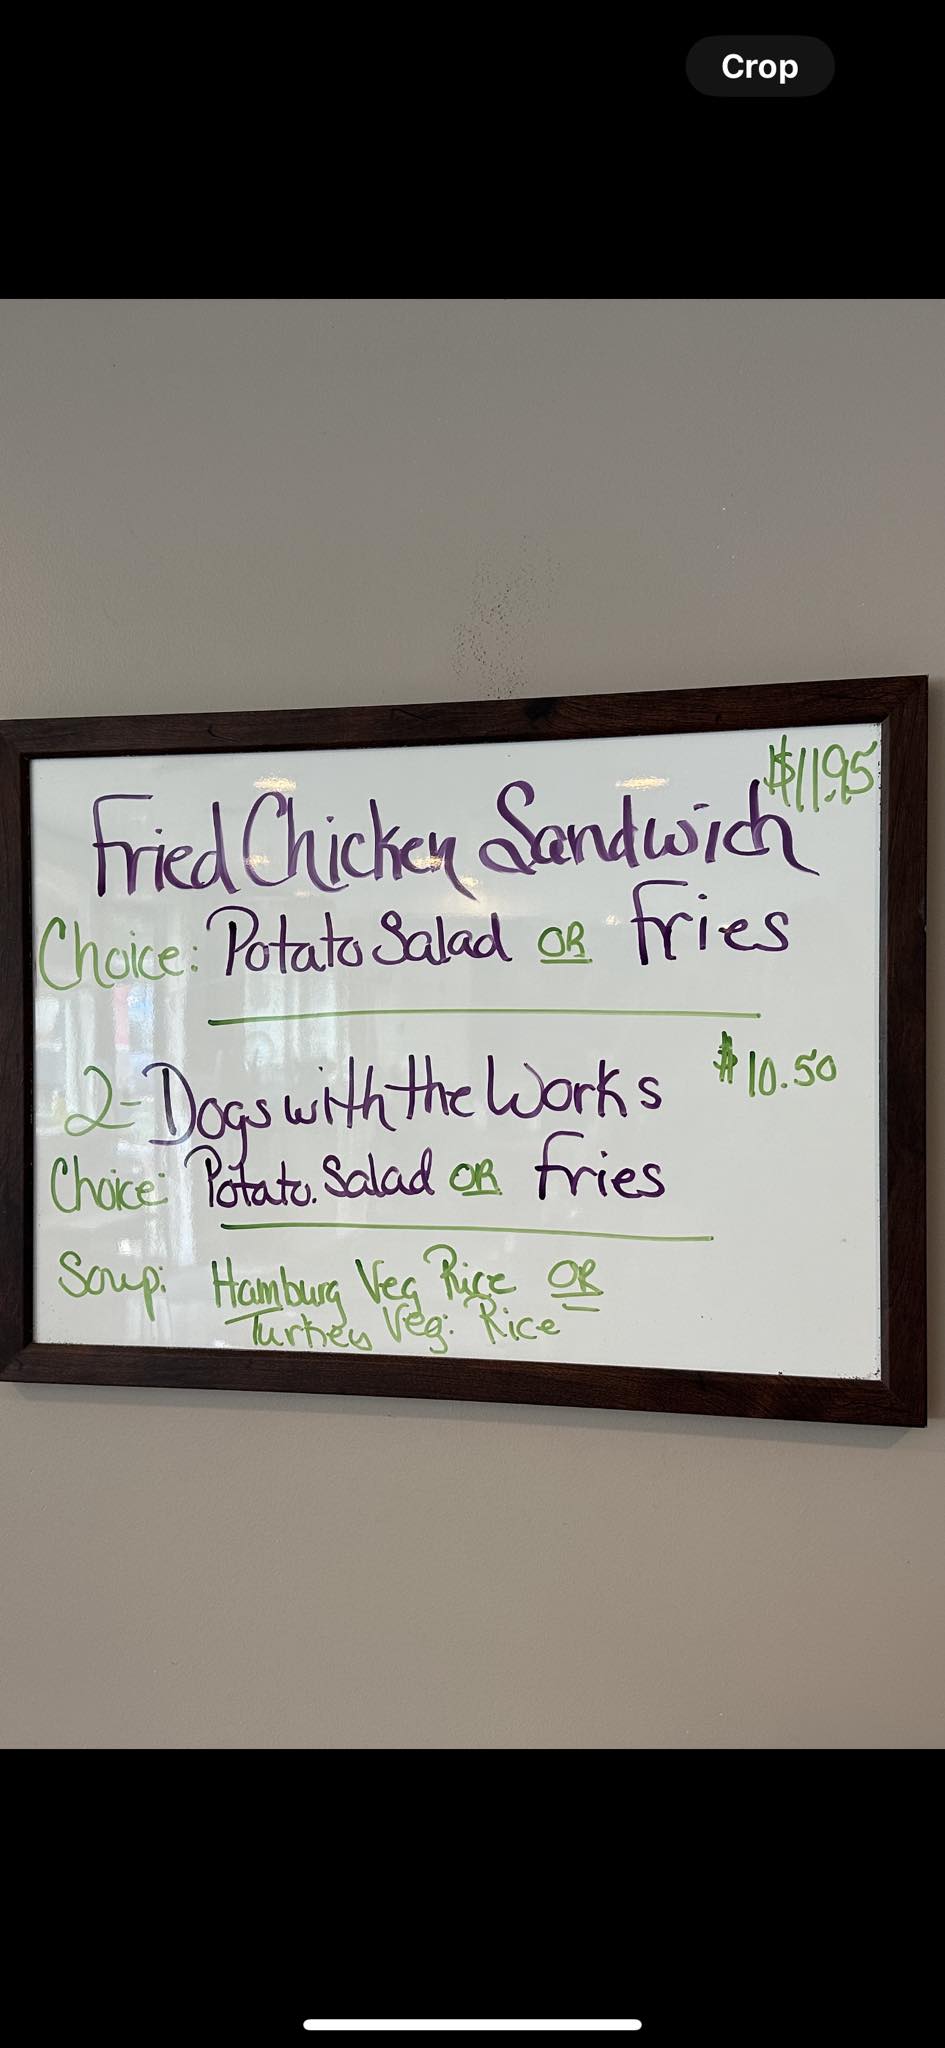 Crop
$11.95
Fried Chicken Sandwich
Choice: Potato Salad OR Fries
2-Dogs with the Works $10.50
Choice: Potato. Salad OR Fries
Soup: Hamburg Veg Rice OR
Turkey Veg. Rice